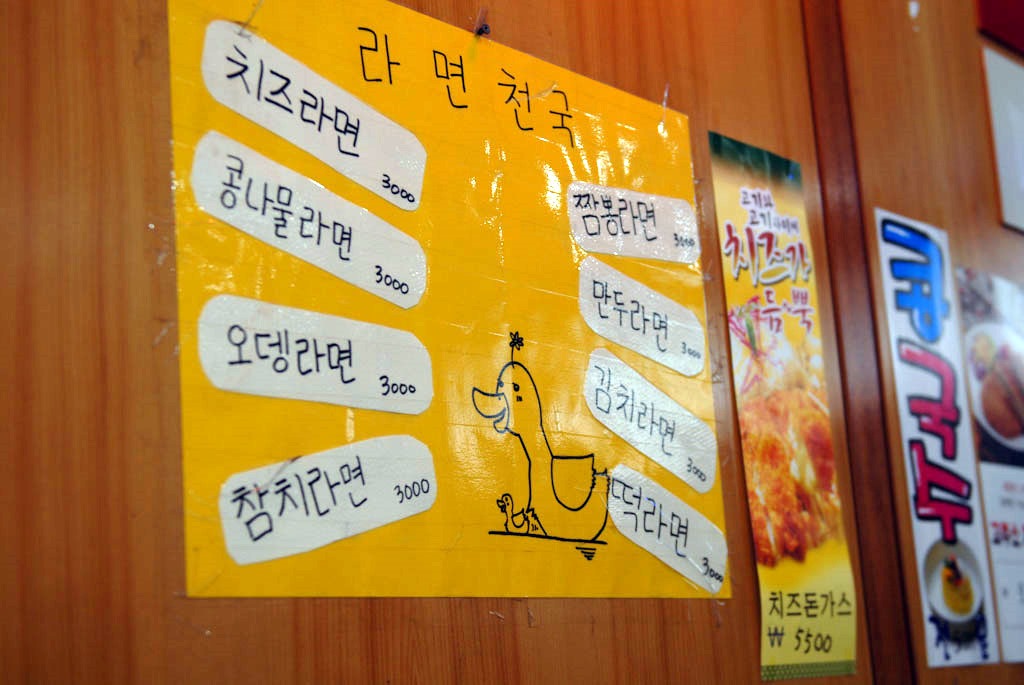 라면천국
치즈라면 3000
콩나물라면 3000
오뎅라면 3000
참치라면 3000
짬뽕라면 3000
만두라면 3000
김치라면 3000
떡라면 3000
고기와
고기 사이에
치즈가
듬~뿍
치즈돈가스
₩ 5500